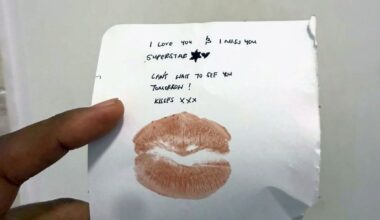 I LOVE YOU & I MISS YOU
SUPERSTAR ★♥
CAN'T WAIT TO SEE YOU
TOMORROW!
XXX